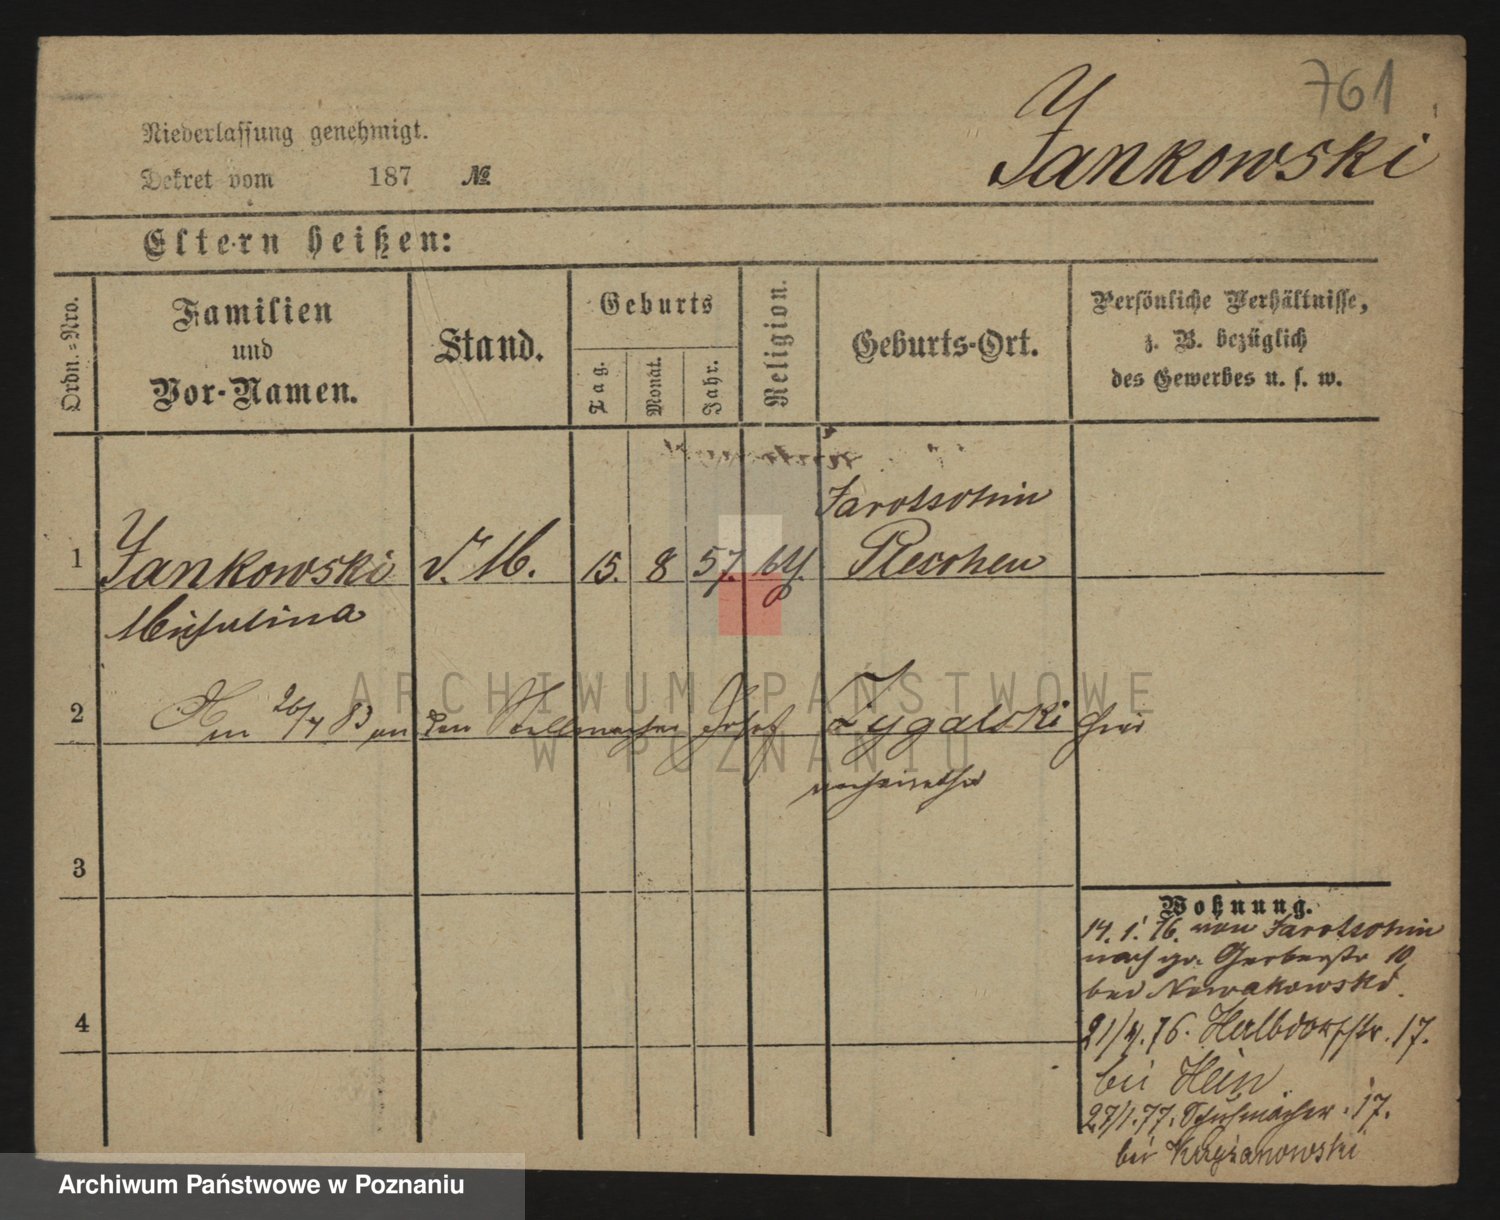 761
Jankowski
Niederlassung genehmigt.
Dekret vom 187 №
Eltern heißen:
Ordn.-Nro.
Familien
und
Vor-Namen.
Stand.
Geburts
Tag.
Monat.
Jahr.
Religion.
Geburts-Ort.
Persönliche Verhältnisse,
z. B. bezüglich
des Gewerbes u. s. w.
Jarotschin
1 Jankowski d. M. 15. 8 57. Pleschen
Michalina
2 Am 26/4 83 an den Stellmacher Josef Zygalski hier
verheirathet
3
4
Wohnung.
14. 1. 76. von Jarotschin
nach gr. Gerberstr 10
bei Nowakowski.
21/4. 76. Halbdorfstr. 17.
bei Hein
27/1. 77. Schuhmacher. 17.
bei Krzyżanowski
ARCHIWUM PAŃSTWOWE
W POZNANIU
Archiwum Państwowe w Poznaniu